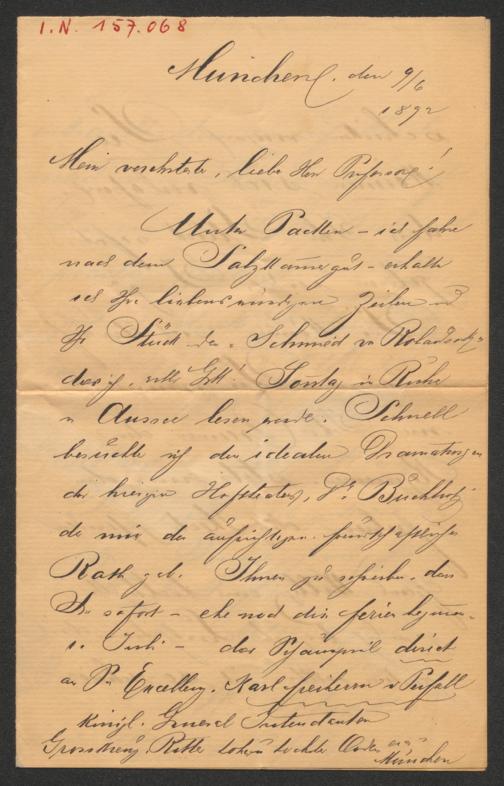 I.N. 157.068
München, den 9/6
1892
Mein verehrtester, lieber Herr Professor!
Unter Packen – ich fahre
nach dem Salzkammergut – erhalte
ich Ihre liebenswürdigen Zeilen und
Ihr Stück der „Schmied v.
das ich, will's Gott! Sonntag in Ruhe
in Aussee lesen werde. Schnell
besuchte ich den idealen Dramaturgen
der hiesigen Hoftheater, Dr. Buchholz
der mir den aufrichtigen freundschaftlichen
Rath gab. Ihnen zu schreiben, dass
Sie sofort – ehe noch die Ferien beginnen
Juli – das Schauspiel direct
an Sr. Excellenz, Karl Freiherrn v Perfall
königl. General Intendanten
Grosskreuz, Ritter hoher Orden
München